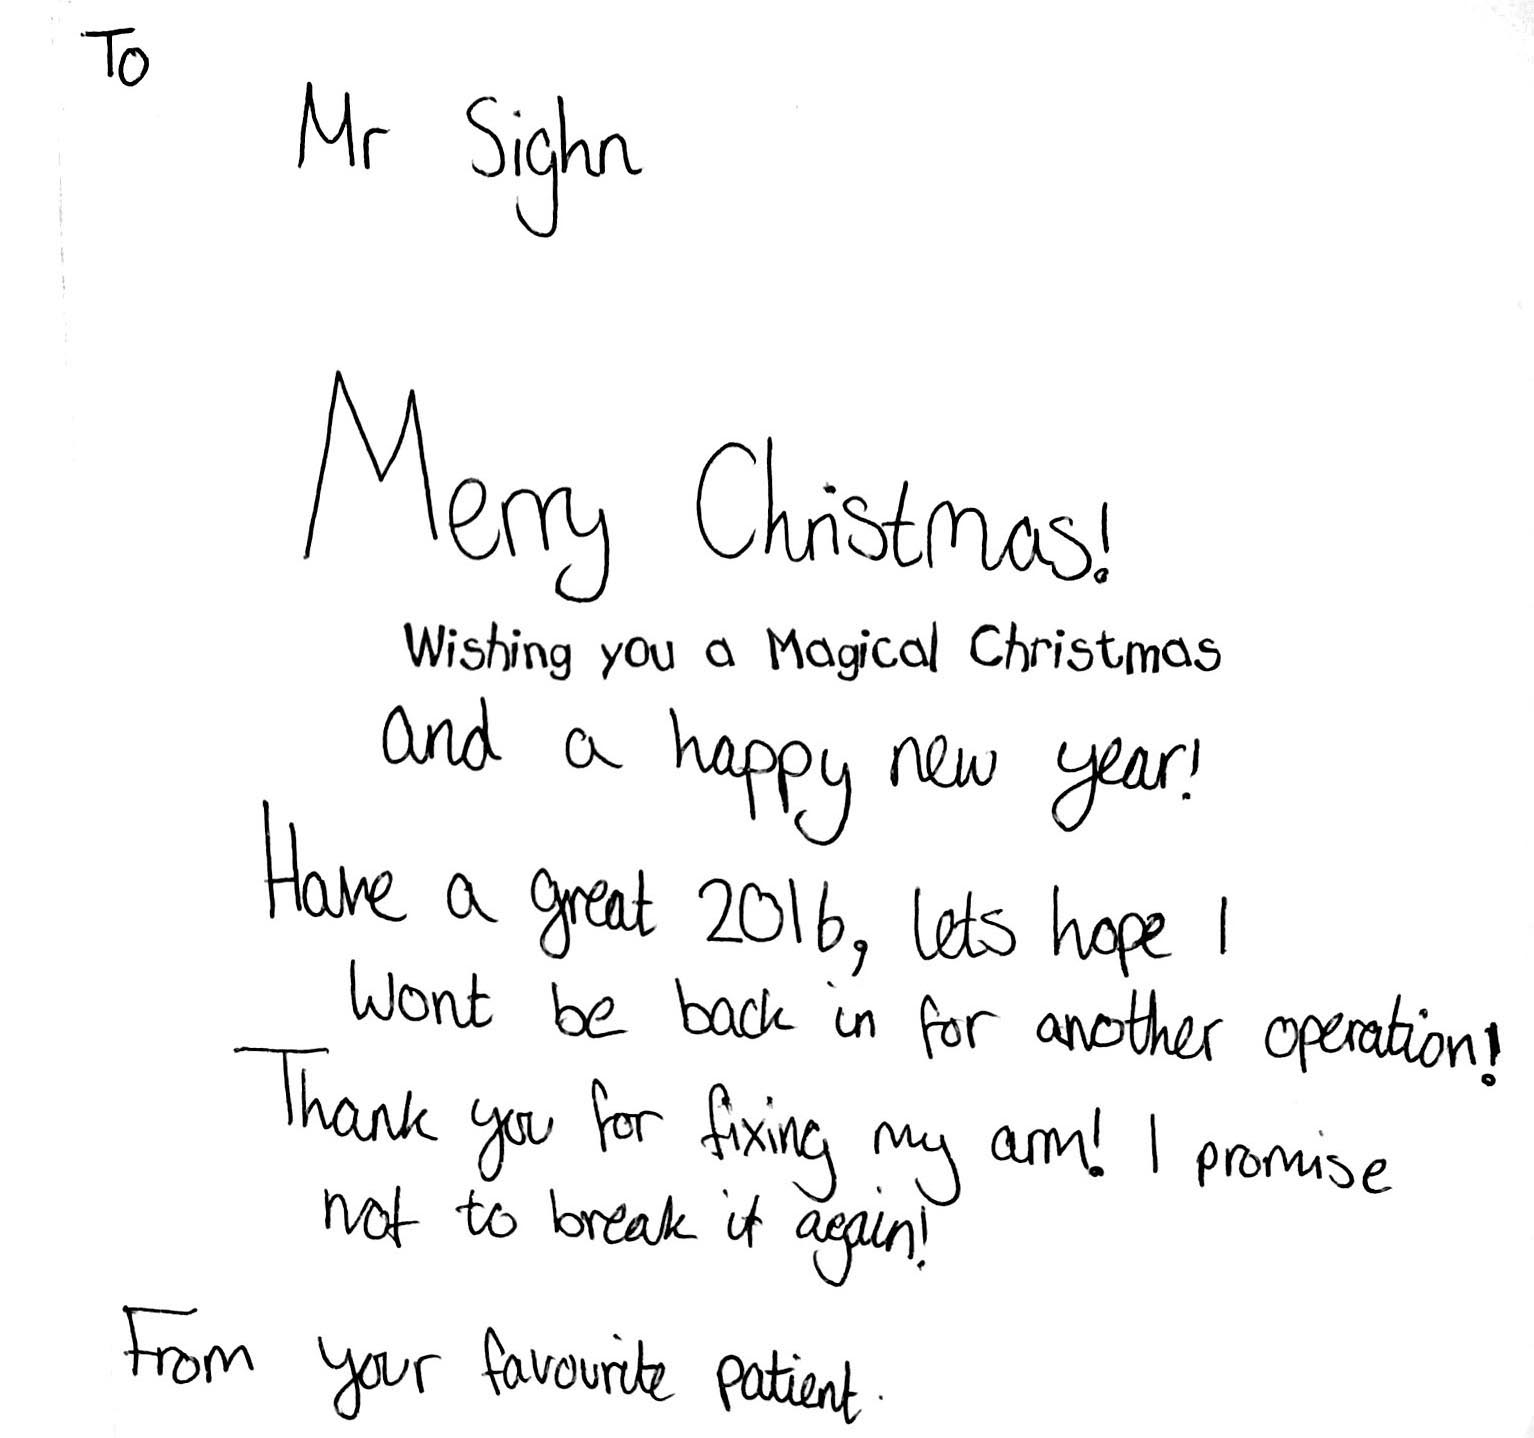 To
Mr Sighn
Merry Christmas!
Wishing you a Magical Christmas
and a happy new year!
Have a great 2016, lets hope I
Wont be back in for another operation!
Thank you for fixing my arm! I promise
not to break it again!
From your favourite patient.